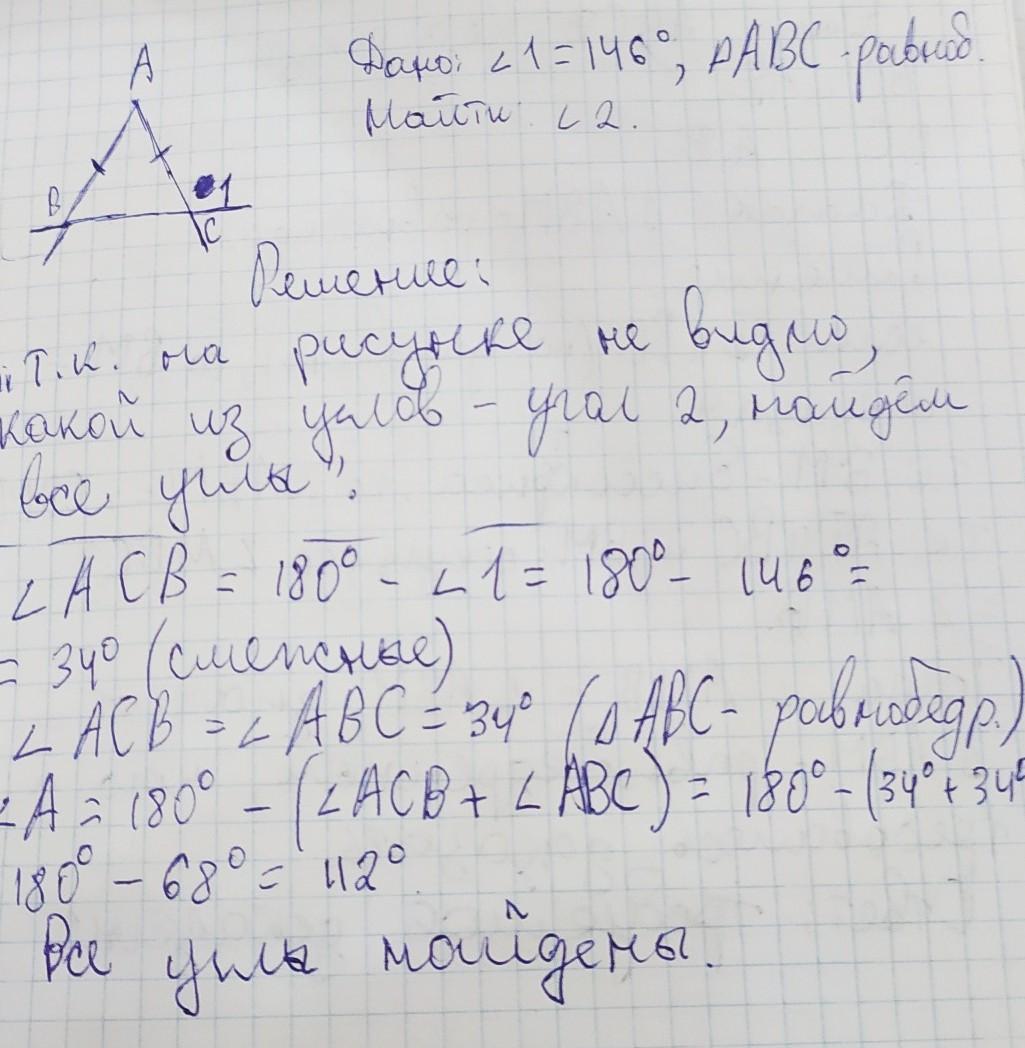 A
B
C
1
Дано: ∠1 = 146°, △ABC - равноб.
Найти: ∠2.
Решение:
"Т.к. на рисунке не видно,
какой из углов - угол 2, найдём
все углы".
∠ACB = 180° - ∠1 = 180° - 146° =
= 34° (смежные)
∠ACB = ∠ABC = 34° (△ABC - равнобедр.)
∠A = 180° - (∠ACB + ∠ABC) = 180° - (34° + 34°
180° - 68° = 112°.
Все углы найдены.